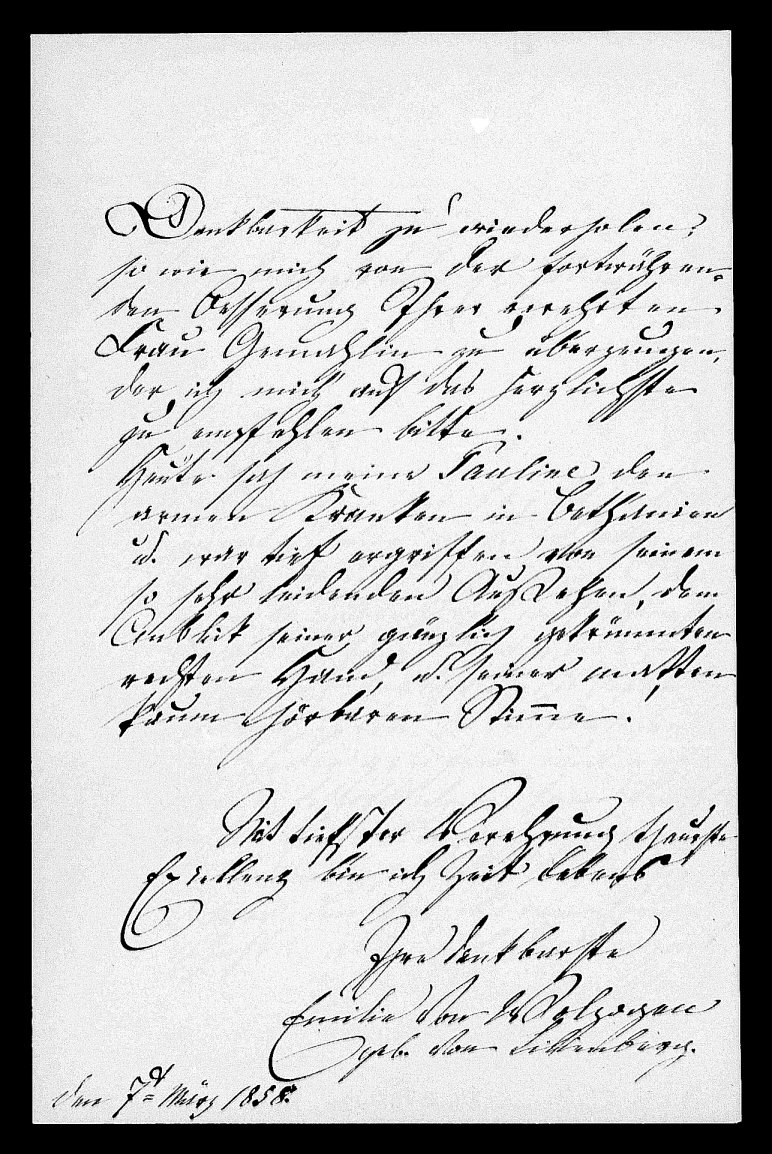 Dankbarkeit zu wiederholen,
so wie mich von der fortwähren-
den Besserung Ihrer verehrten
Frau Gemahlin zu überzeugen,
der ich mich auf das herzlichste
zu empfehlen bitte.
Heute sah meine Pauline den
armen Kranken in Bethanien
u. war tief ergriffen von seinem
so sehr leidenden Aussehen, dem
Anblik seiner gänzlich gekrümmten
rechten Hand, u. seiner matten
kaum hörbaren Stimme.
Mit tiefster Verehrung theurste
Excellenz bin ich Zeit Lebens
Ihre dankbarste
Emilie von Wolzogen
geb. von Lilienberg.
den 7t März 1858.